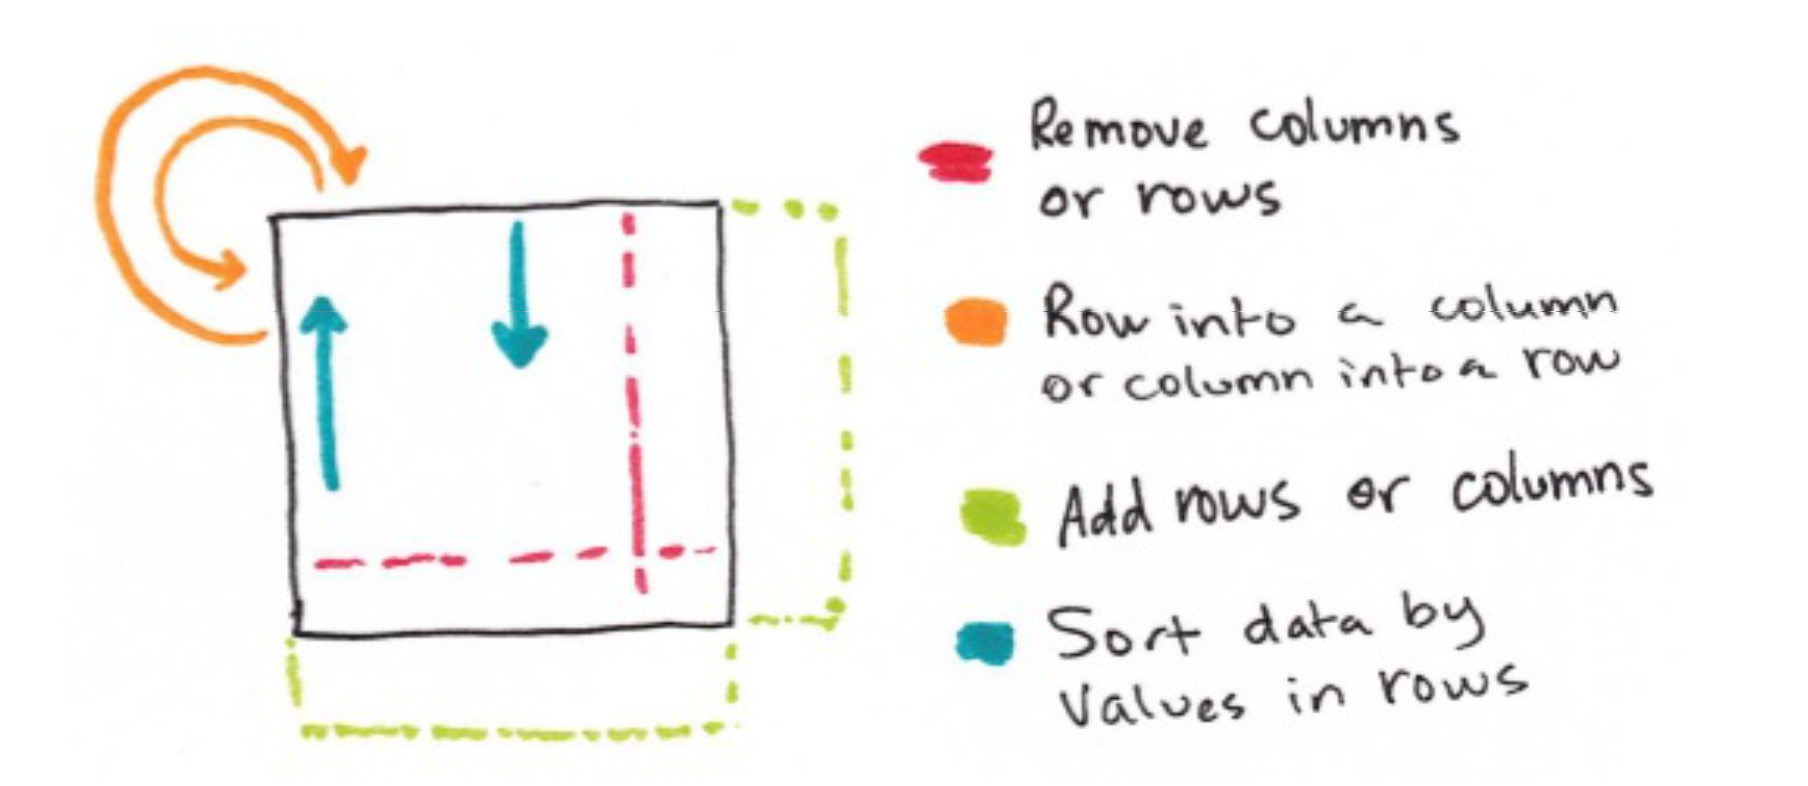 Remove columns
or rows
Row into a column
or column into a row
Add rows or columns
Sort data by
values in rows